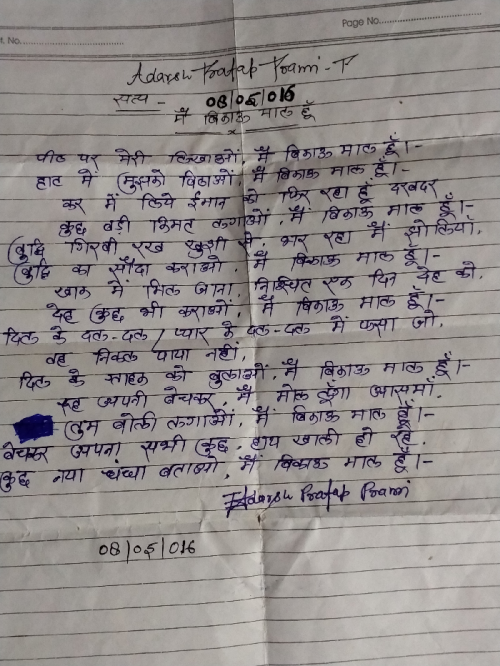 t. No.
Page No.
Adarsh Pratap Prami - F
सत्य -
08/05/016
मैं बिकाऊ माल हूँ
पीठ पर मेरी लिखाओ, मैं बिकाऊ माल हूँ।-
हाट में मुझको बिठाओ, मैं बिकाऊ माल हूँ।-
कर में लिये ईमान को फिर रहा हूँ दरबदर
कुछ बड़ी किमत लगाओ, मैं बिकाऊ माल हूँ।-
बुद्धि गिरवी रख खुशी से, भर रहा मैं झोलियाँ,
बुद्धि का सौदा कराओ, मैं बिकाऊ माल हूँ।-
खाक में मिल जाना, निश्चित एक दिन देह को,
देह कुछ भी कराओ, मैं बिकाऊ माल हूँ।-
दिल के दल-दल / प्यार के दल-दल में फसा जो,
वह निकल पाया नहीं,
दिल के ग्राहक को बुलाओ, मैं बिकाऊ माल हूँ।-
रूह अपनी बेचकर, मैं मोल लूँगा आसमाँ,
तुम बोली लगाओ, मैं बिकाऊ माल हूँ।-
बेचकर अपना सभी कुछ, हाथ खाली हो रहे,
कुछ नया धंधा बताओ, मैं बिकाऊ माल हूँ।-
Adarsh Pratap Prami
08/05/016